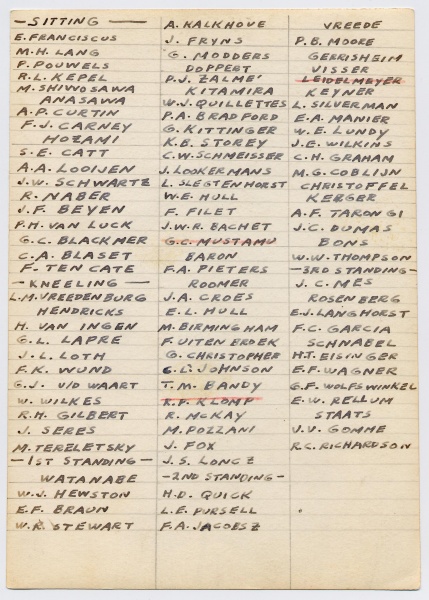 — SITTING —
E. FRANCISCUS
M.H. LANG
P. POUWELS
R.L. KEPEL
M. SHIWOSAWA
ANASAWA
A.P. CURTIN
F.J. CARNEY
HOZAMI
S.E. CATT
A.A. LOOIJEN
J.W. SCHWARTZ
R. NABER
J.F. BEYEN
P.H. VAN LUCK
G.C. BLACKMER
C.A. BLASET
F. TEN CATE
— KNEELING —
L.M. VREEDENBURG
HENDRICKS
H. VAN INGEN
G.L. LAPRE
J.L. LOTH
F.K. WUND
G.J. V/D WAART
W. WILKES
R.H. GILBERT
J. SERES
M. TERELETSKY
— 1ST STANDING —
WATANABE
W.J. HEWSTON
E.F. BRAUN
W.R. STEWART
A. KALKHOVE
J. FRYNS
G. MODDERS
DOPPERT
P.J. ZALME'
KITAMIRA
W.J. QUILLETTES
P.A. BRADFORD
G. KITTINGER
K.B. STOREY
C.W. SCHMEISSER
J. LOOKERMANS
L. SLEGTENHORST
W.E. HULL
F. FILET
J.W.R. BACHET
G.C. MUSTAMU
BARON
F.A. PIETERS
ROOMER
J.A. CROES
E.L. HULL
M. BIRMINGHAM
F. UITEN BROEK
G. CHRISTOPHER
C.L. JOHNSON
T.M. BANDY
R.P. KLOMP
R. McKAY
M. POZZANI
J. FOX
J.S. LONCZ
— 2ND STANDING —
H.D. QUICK
L.E. PURSELL
F.A. JACOESZ
VREEDE
P.B. MOORE
GERRISHEIM
VISSER
LEIDELMEYER
KEYNER
L. SILVERMAN
E.A. MANIER
W.E. LUNDY
J.E. WILKINS
C.H. GRAHAM
M.G. COBLIJN
CHRISTOFFEL
KERGER
A.F. TARONGI
J.C. DUMAS
BONS
W.W. THOMPSON
— 3RD STANDING —
J.C. MES
ROSENBERG
E.J. LANGHORST
F.C. GARCIA
SCHNABEL
H.T. EISINGER
E.F. WAGNER
G.F. WOLFSWINKEL
E.W. RELLUM
STAATS
J.V. GOMME
R.C. RICHARDSON